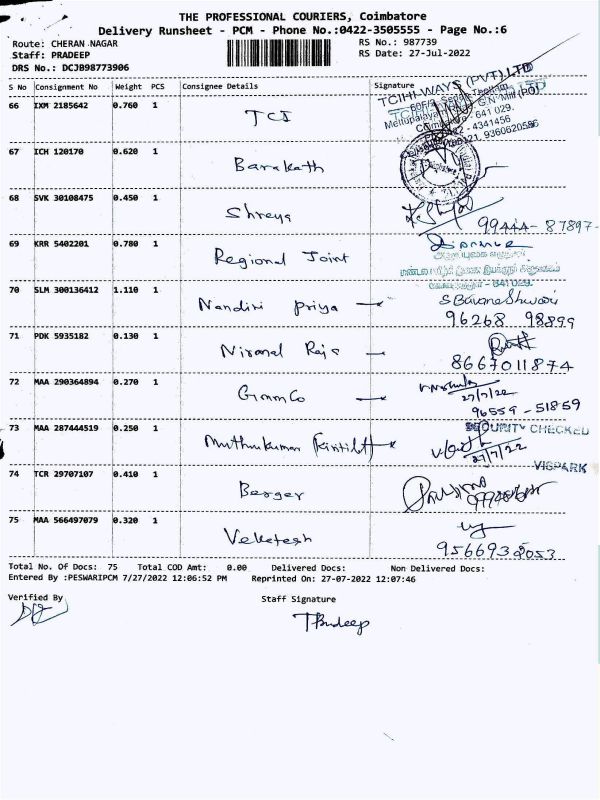 THE PROFESSIONAL COURIERS, Coimbatore
Delivery Runsheet - PCM - Phone No.:0422-3505555 - Page No.:6
Route: CHERAN NAGAR RS No.: 987739
Staff: PRADEEP RS Date: 27-Jul-2022
DRS No.: DCJ098773906
S No Consignment No Weight PCS Consignee Details Signature
66 IXM 2185642 0.760 1 TCI
TCIHI-WAYS (PVT) LTD
Coimbatore - 641 029.
67 ICH 120170 0.620 1 Barakath
68 SVK 30108475 0.450 1 Shreya
99444-87897-
69 KRR 5402201 0.780 1 Regional Joint
70 SLM 300136412 1.110 1 Nandini priya
96268 98899
71 PDK 5935182 0.130 1 Nirmal Raja
8667011874
72 MAA 290364894 0.270 1
27/7/22
96559-51859
73 MAA 287444519 0.250 1 Muthukumar
SECURITY CHECKED
27/7/22
VISPARK
74 TCR 29707107 0.410 1 Berger
75 MAA 566497079 0.320 1
Total No. Of Docs: 75 Total COD Amt: 0.00 Delivered Docs: Non Delivered Docs:
Entered By :PESWARIPCM 7/27/2022 12:06:52 PM Reprinted On: 27-07-2022 12:07:46
Verified By Staff Signature